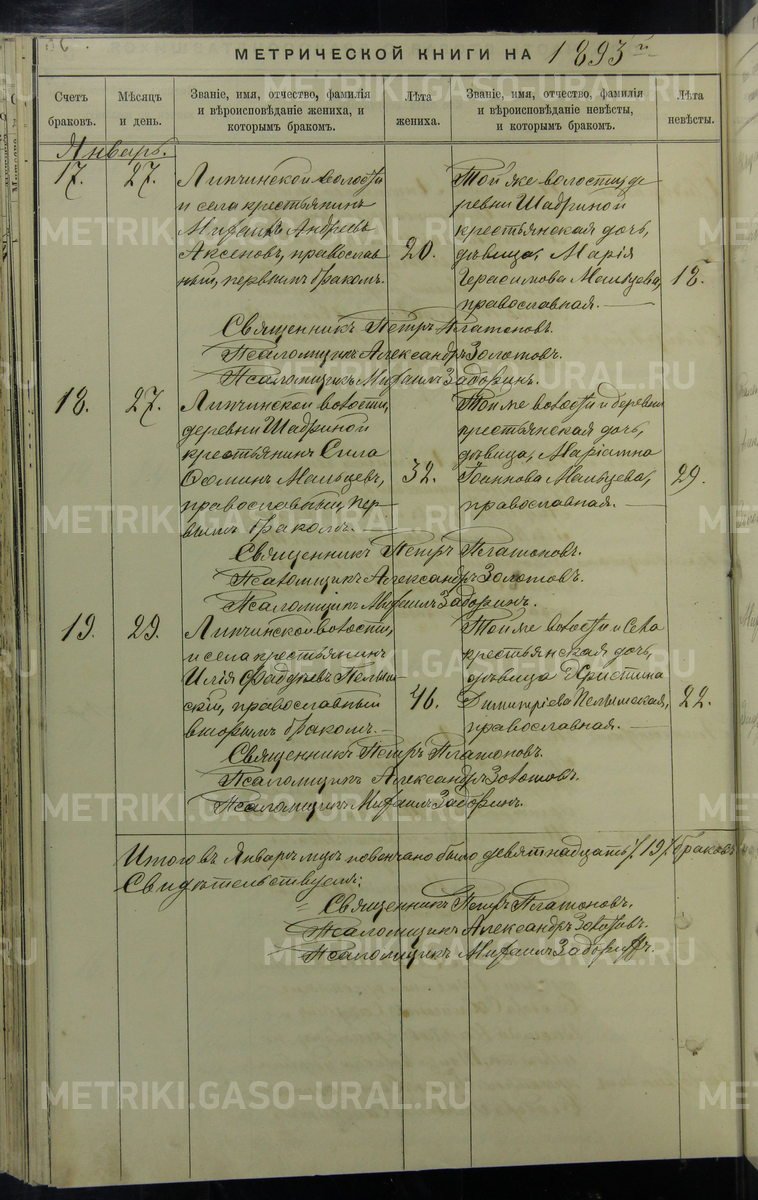 МЕТРИЧЕСКОЙ КНИГИ НА 1893й
Счетъ браковъ.
Мѣсяцъ и день.
Званіе, имя, отчество, фамилія и вѣроисповѣданіе жениха, и которымъ бракомъ.
Лѣта жениха.
Званіе, имя, отчество, фамилія и вѣроисповѣданіе невѣсты, и которымъ бракомъ.
Лѣта невѣсты.
Январь.
17. 27.
Липчинской волости
и села крестьянинъ
Михаилъ Андреевъ
Аксеновъ, православ
ный, первымъ бракомъ.
20.
Той же волости, де
ревни Шадриной
крестьянская дочь,
дѣвица, Марія
Герасимова Мальцева,
православная.
18.
Священникъ Петръ Платоновъ.
Псаломщикъ Александръ Золотовъ.
Псаломщикъ Михаилъ Задоринъ.
18. 27.
Липчинской волости,
деревни Шадриной
крестьянинъ Сила
Ѳоминъ Мальцевъ,
православный, пер
вымъ бракомъ.
32.
Той же волости и деревни
крестьянская дочь,
дѣвица, Маріамна
Іоаннова Мальцева,
православная.
29.
Священникъ Петръ Платоновъ.
Псаломщикъ Александръ Золотовъ.
Псаломщикъ Михаилъ Задоринъ.
19. 29.
Липчинской волости,
и села крестьянинъ
Илія Фаддѣевъ Пелым
скій, православный
вторымъ бракомъ.
46.
Той же волости и села
крестьянская дочь,
дѣвица Христина
Димитріева Пелымская,
православная.
22.
Священникъ Петръ Платоновъ.
Псаломщикъ Александръ Золотовъ.
Псаломщикъ Михаилъ Задоринъ.
Итого въ Январѣ мцѣ повенчано было девятнадцать /19/ браковъ
Свидѣтельствуемъ:
Священникъ Петръ Платоновъ.
Псаломщикъ Александръ Золотовъ.
Псаломщикъ Михаилъ Задоринъ.
METRIKI.GASO-URAL.RU